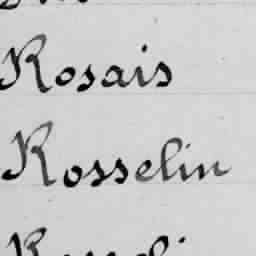 Rosais
Rosselin